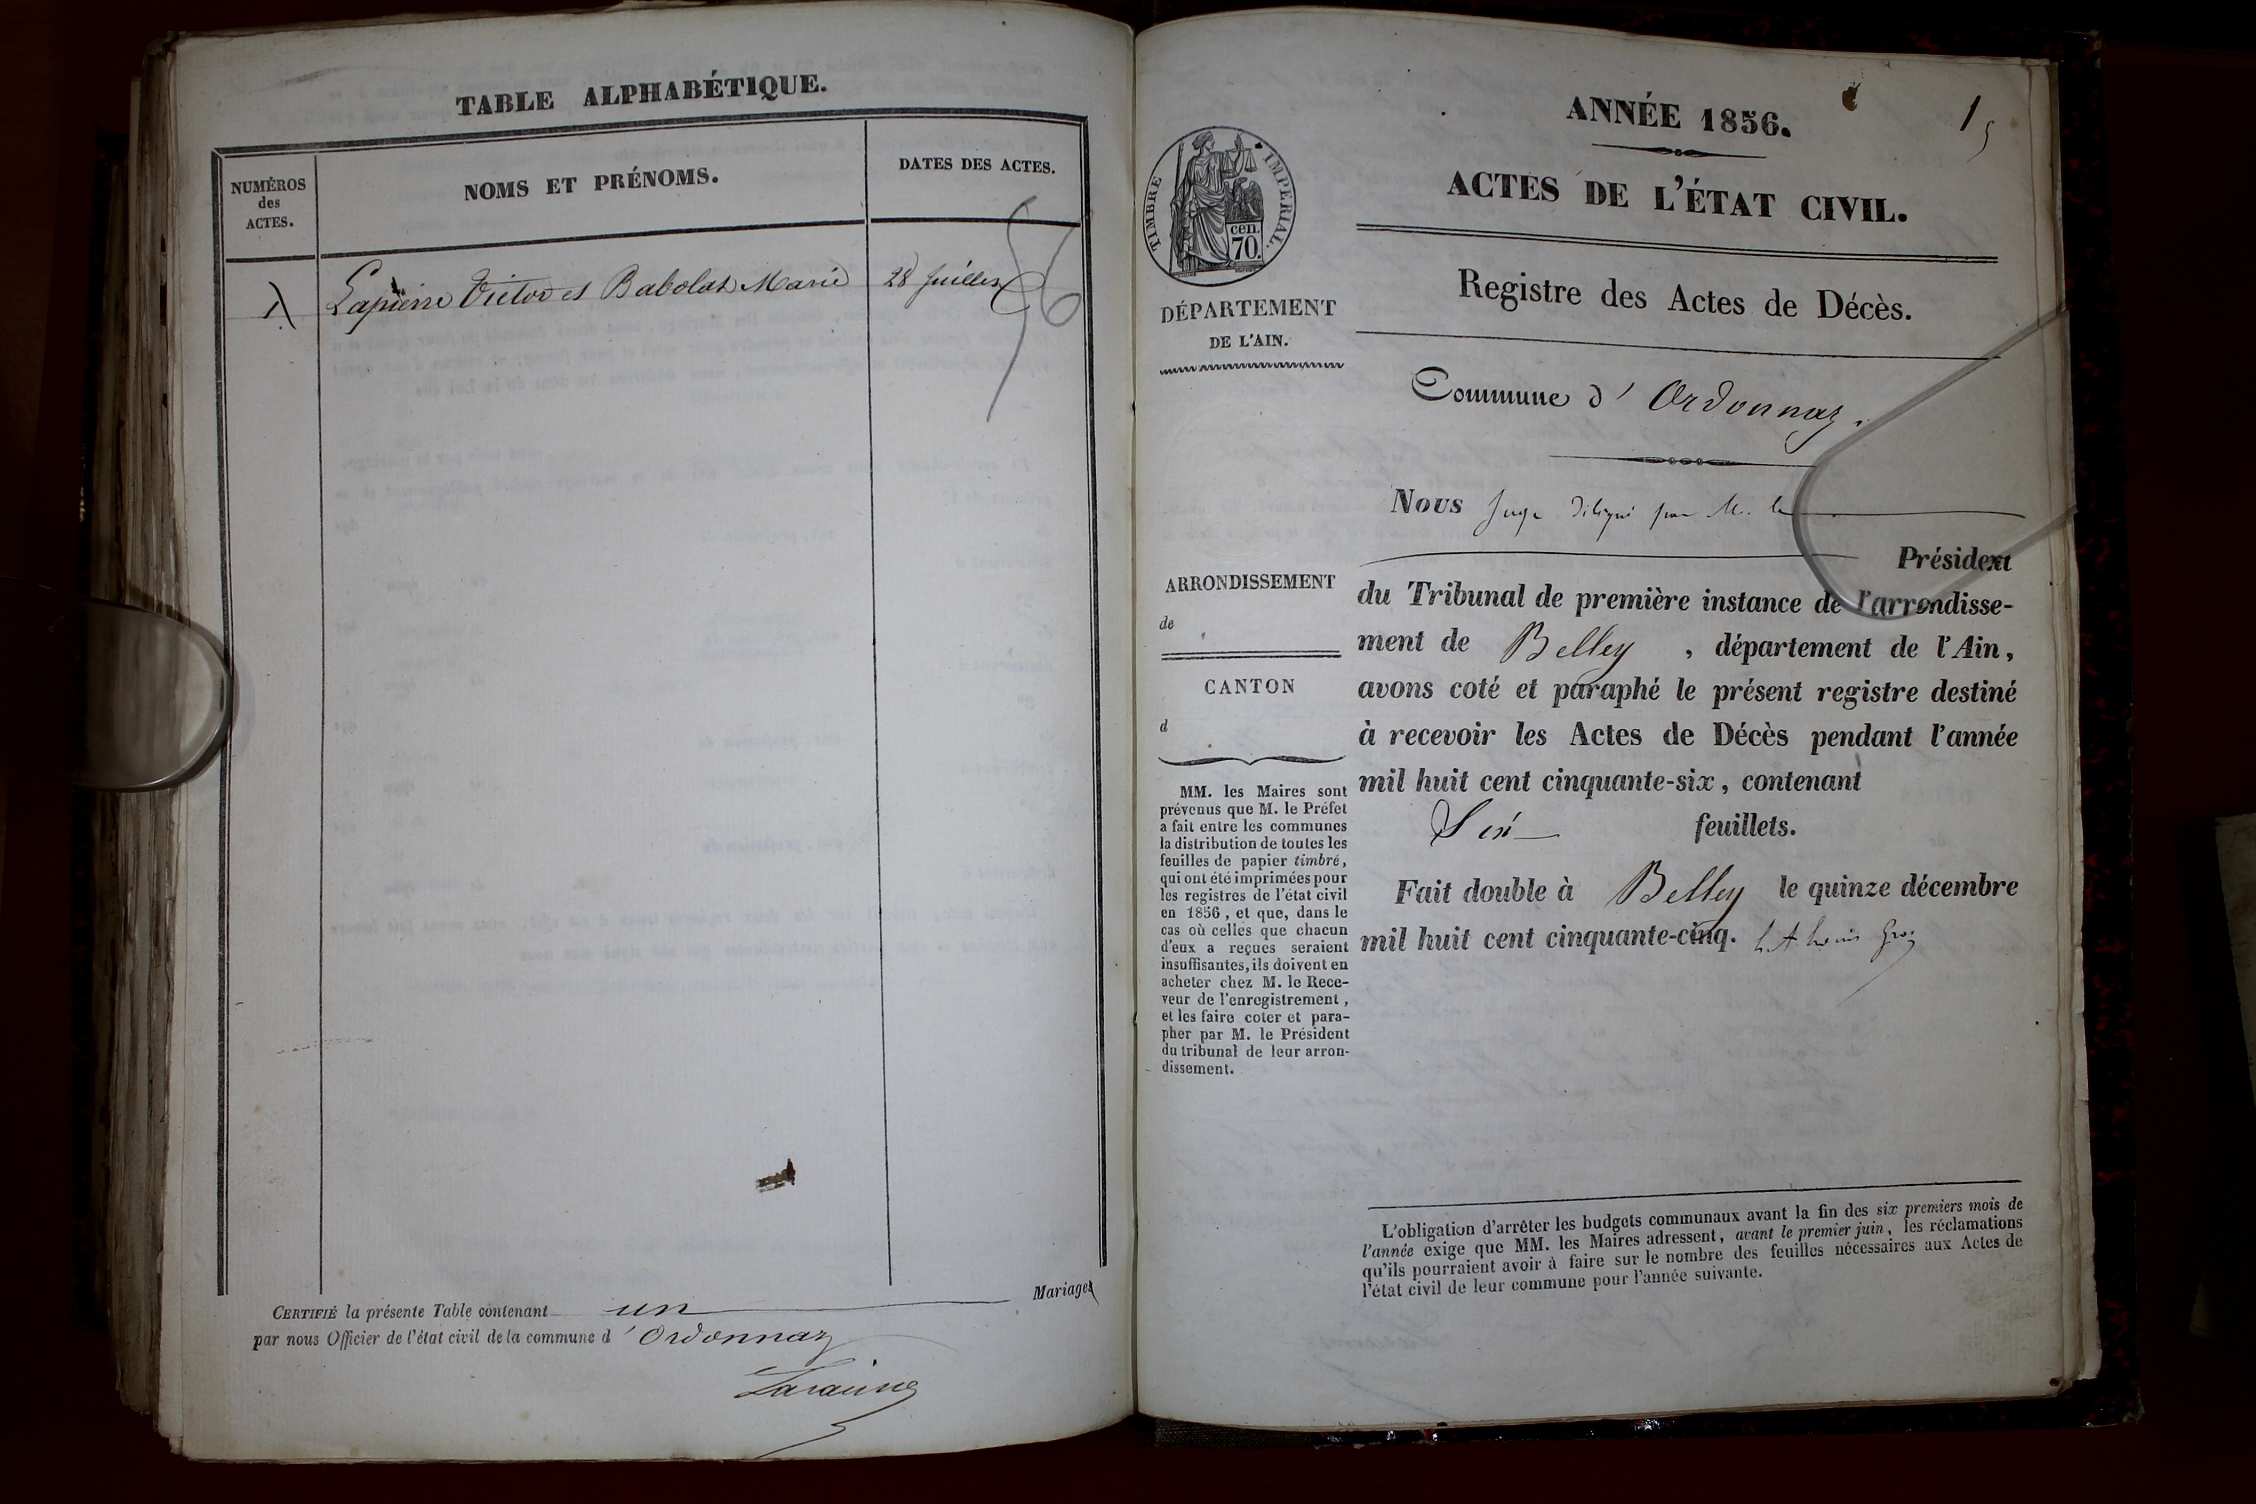 TABLE ALPHABÉTIQUE.
NUMÉROS
des
ACTES.
NOMS ET PRÉNOMS.
DATES DES ACTES.
1
Lapierre Victor et Babolat Marie
28 Juillet
56
CERTIFIÉ la présente Table contenant un Mariages
par nous Officier de l'état civil de la commune d'Ordonnaz
1
ANNÉE 1856.
ACTES DE L'ÉTAT CIVIL.
Registre des Actes de Décès.
TIMBRE IMPÉRIAL.
cen.
70.
DÉPARTEMENT
DE L'AIN.
Commune d'Ordonnaz.
Nous Juge délégué par M. le
Président
du Tribunal de première instance de l'arrondisse-
ment de Belley, département de l'Ain,
avons coté et paraphé le présent registre destiné
à recevoir les Actes de Décès pendant l'année
mil huit cent cinquante-six, contenant
Six feuillets.
Fait double à Belley le quinze décembre
mil huit cent cinquante-cinq.
ARRONDISSEMENT
de
CANTON
d
MM. les Maires sont
prévenus que M. le Préfet
a fait entre les communes
la distribution de toutes les
feuilles de papier timbré,
qui ont été imprimées pour
les registres de l'état civil
en 1856, et que, dans le
cas où celles que chacun
d'eux a reçues seraient
insuffisantes, ils doivent en
acheter chez M. le Rece-
veur de l'enregistrement,
et les faire coter et para-
pher par M. le Président
du tribunal de leur arron-
dissement.
L'obligation d'arrêter les budgets communaux avant la fin des six premiers mois de
l'année exige que MM. les Maires adressent, avant le premier juin, les réclamations
qu'ils pourraient avoir à faire sur le nombre des feuilles nécessaires aux Actes de
l'état civil de leur commune pour l'année suivante.